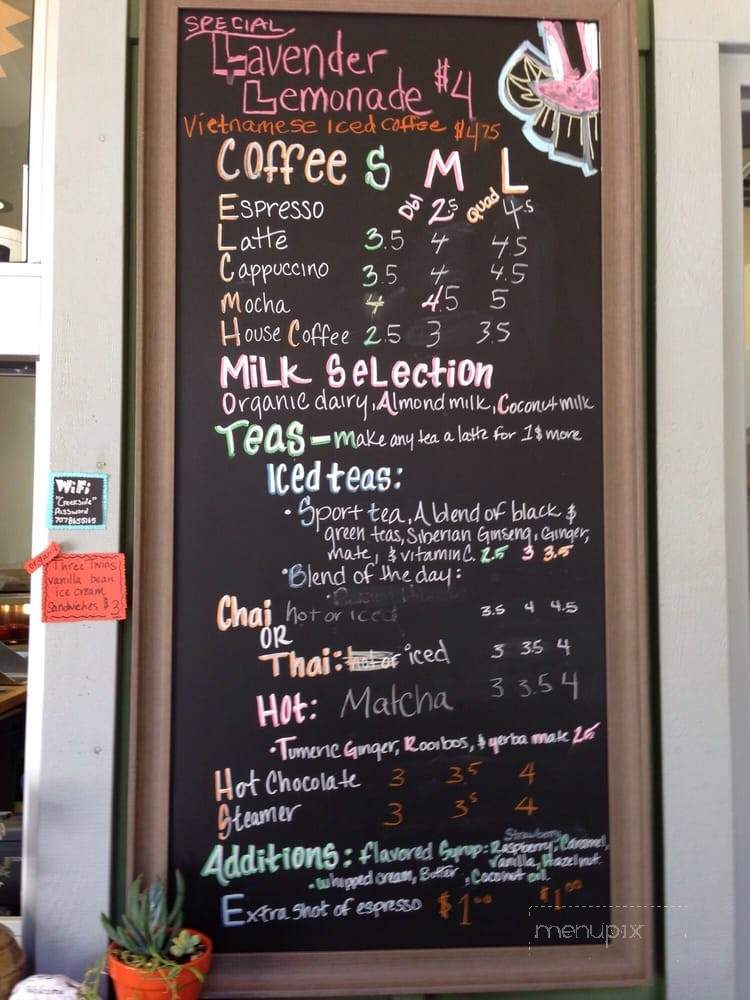 SPECIAL
Lavender
Lemonade $4
Vietnamese Iced Coffee $4.75
Coffee S M L
Espresso Dbl 2.5 Quad 4.5
Latte 3.5 4 4.5
Cappuccino 3.5 4 4.5
Mocha 4 4.5 5
House Coffee 2.5 3 3.5
Milk Selection
Organic dairy, Almond milk, Coconut milk
Teas - make any tea a latte for 1$ more
Iced teas:
• Sport tea, A blend of black &
green teas, Siberian Ginseng, Ginger,
mate, & vitamin C. 2.5 3 3.5
• Blend of the day:
Chai hot or iced 3.5 4 4.5
OR
Thai: hot or iced 3 3.5 4
Hot: Matcha 3 3.5 4
• Tumeric Ginger, Rooibos, & yerba mate 2.5
Hot Chocolate 3 3.5 4
Steamer 3 3.5 4
Strawberry
Additions: flavored Syrup: Raspberry, Caramel,
Vanilla, Hazelnut
• whipped cream, Butter, Coconut oil. $1.00
Extra Shot of espresso $1.00
WiFi
"Creekside"
Password
7078655165
organic
Three Twins
Vanilla bean
ice cream
Sandwiches $3
menupix